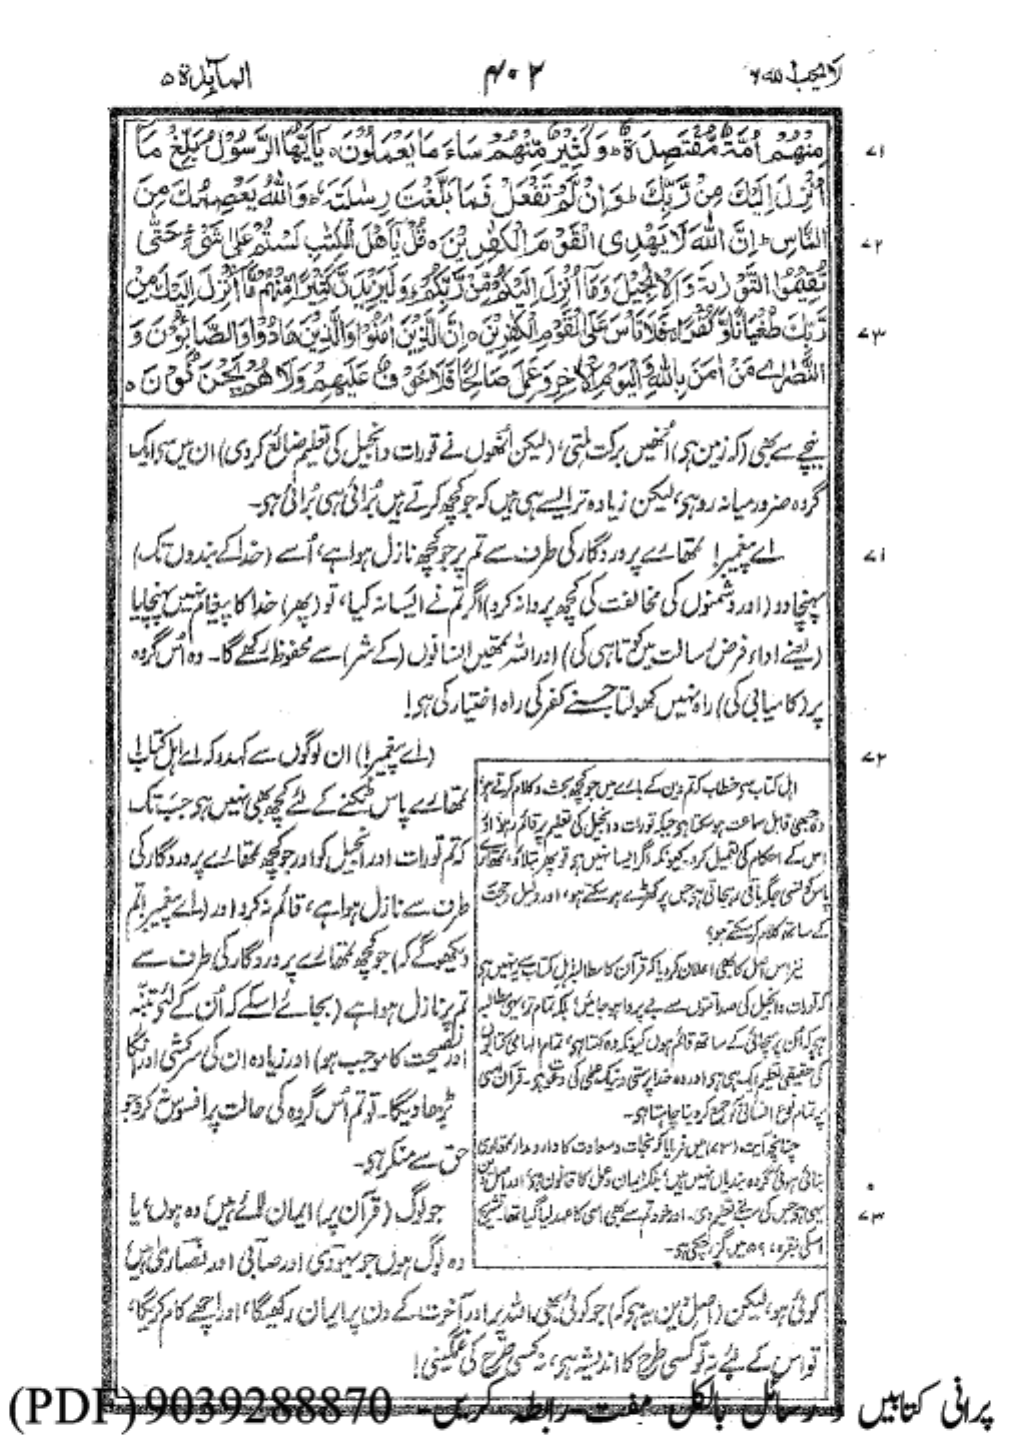 لا یحب اللہ ۶
۴۰۲
المآئدۃ ۵
مِنْهُمْ اُمَّةٌ مُّقْتَصِدَةٌ ؕ وَكَثِيْرٌ مِّنْهُمْ سَآءَ مَا يَعْمَلُوْنَ ۝ يٰۤاَيُّهَا الرَّسُوْلُ بَلِّغْ مَاۤ
۷۱
اُنْزِلَ اِلَيْكَ مِنْ رَّبِّكَ ؕ وَاِنْ لَّمْ تَفْعَلْ فَمَا بَلَّغْتَ رِسٰلَتَهٗ ؕ وَاللّٰهُ يَعْصِمُكَ مِنَ
النَّاسِ ؕ اِنَّ اللّٰهَ لَا يَهْدِى الْقَوْمَ الْكٰفِرِيْنَ ۝ قُلْ يٰۤاَهْلَ الْكِتٰبِ لَسْتُمْ عَلٰى شَىْءٍ حَتّٰى
۷۲
تُقِيْمُوا التَّوْرٰىةَ وَالْاِنْجِيْلَ وَمَاۤ اُنْزِلَ اِلَيْكُمْ مِّنْ رَّبِّكُمْ ؕ وَلَيَزِيْدَنَّ كَثِيْرًا مِّنْهُمْ مَّاۤ اُنْزِلَ اِلَيْكَ مِنْ
رَّبِّكَ طُغْيَانًا وَّكُفْرًا ۚ فَلَا تَاْسَ عَلَى الْقَوْمِ الْكٰفِرِيْنَ ۝ اِنَّ الَّذِيْنَ اٰمَنُوْا وَالَّذِيْنَ هَادُوْا وَالصَّابِئُوْنَ وَ
۷۳
النَّصٰرٰى مَنْ اٰمَنَ بِاللّٰهِ وَالْيَوْمِ الْاٰخِرِ وَعَمِلَ صَالِحًا فَلَا خَوْفٌ عَلَيْهِمْ وَلَا هُمْ يَحْزَنُوْنَ ۝
نیچے سے بھی (کہ زمین ہی) اُنھیں برکت ملتی، (لیکن اُنھوں نے تورات و انجیل کی تعلیم ضائع کردی) ان میں سے ایک
گروہ ضرور میانہ رو ہی، لیکن زیادہ تر ایسے ہی ہیں کہ جو کچھ کرتے ہیں بُرائی ہی بُرائی ہو۔
۷۱
اے پیغمبر! تمھارے پروردگار کی طرف سے تم پر جو کچھ نازل ہوا ہے، اُسے (خدا کے بندوں تک)
پہنچا دو (اور دشمنوں کی مخالفت کی کچھ پروا نہ کرو) اگر تم نے ایسا نہ کیا، تو (پھر) خدا کا پیغام نہیں پہنچایا
(یعنے اداءِ فرض رسالت میں کوتاہی کی) اور اللہ تمھیں انسانوں (کے شر) سے محفوظ رکھے گا۔ وہ اُس گروہ
پر (کامیابی کی) راہ نہیں کھولتا جسنے کفر کی راہ اختیار کی ہی!
۷۲
(اے پیغمبر!) ان لوگوں سے کہدو کہ اے اہل کتاب!
تمھارے پاس ٹکنے کے لئے کچھ بھی نہیں ہو جب تک
کہ تم تورات اور انجیل کو اور جو کچھ تمھارے پروردگار کی
طرف سے نازل ہوا ہے، قائم نہ کرو اور (اے پیغمبر! تم
دیکھوگے کہ) جو کچھ تمھارے پروردگار کی طرف سے
تم پر نازل ہوا ہے (بجائے اسکے کہ اُن کے لئے تنبہ
اور نصیحت کا موجب ہو) اور زیادہ ان کی سرکشی اور انکار
بڑھا دیگا۔ تو تم اُس گروہ کی حالت پر افسوس نہ کرو جو
حق سے منکر ہی۔
جو لوگ (قرآن پر) ایمان لائے ہیں وہ ہوں، یا
۷۳
وہ لوگ ہوں جو یہودی اور صابی اور نصاریٰ ہیں
اہل کتاب سے خطاب کہ تم دین کے بارے میں جو کچھ بحث و کلام کرتے ہو
وہ جبھی قابل سماعت ہو سکتا ہی جبکہ تورات و انجیل کی تعلیم پر قائم رہو اور
اس کے احکام کی تعمیل کرو۔ کیونکہ اگر ایسا نہیں ہو تو پھر بتلاؤ، تمھارے
پاس کونسی جگہ باقی رہجاتی ہی جس پر کھڑے ہو سکتے ہو، اور دلیل و حجت
کے ساتھ کلام کر سکتے ہو؟
نیز اس اصل کا بھی اعلان کردیا کہ قرآن کا مطالبہ اہل کتاب سے یہ نہیں ہی
کہ تورات و انجیل کی صداقتوں سے بے پروا ہو جائیں، بلکہ تمام تر یہی مطالبہ
ہی کہ اُن پر سچائی کے ساتھ قائم ہوں کیونکہ وہ کہتا ہی، تمام الہامی کتابوں
کی حقیقی تعلیم ایک ہی ہی اور وہ خدا پرستی و نیک عملی کی دعوت ہی۔ قرآن اسی
پر تمام نوع انسانی کو جمع کردینا چاہتا ہی۔
چنانچہ آیت (۷۳) میں فرمایا کہ نجات و سعادت کا دارومدار تمھاری
بنائی ہوئی گروہ بندیاں نہیں ہیں، بلکہ ایمان و عمل کا قانون ہی، اور اصل دین
یہی ہی جس کی سب نے تعلیم دی۔ اور خود تم سے بھی اسی کا عہد لیا گیا تھا۔ تشریح
اسکی بقرہ، ۵۹ میں گزر چکی ہی۔
کوئی ہو، لیکن (اصل دین یہ ہی کہ) جو کوئی بھی اللہ پر اور آخرت کے دن پر ایمان رکھیگا، اور اچھے کام کریگا،
تو اس کے لئے نہ تو کسی طرح کا اندیشہ ہی، نہ کسی طرح کی غمگینی!
پرانی کتابیں و رسائل بالکل مفت رابطہ کریں 9039288870 (PDF)